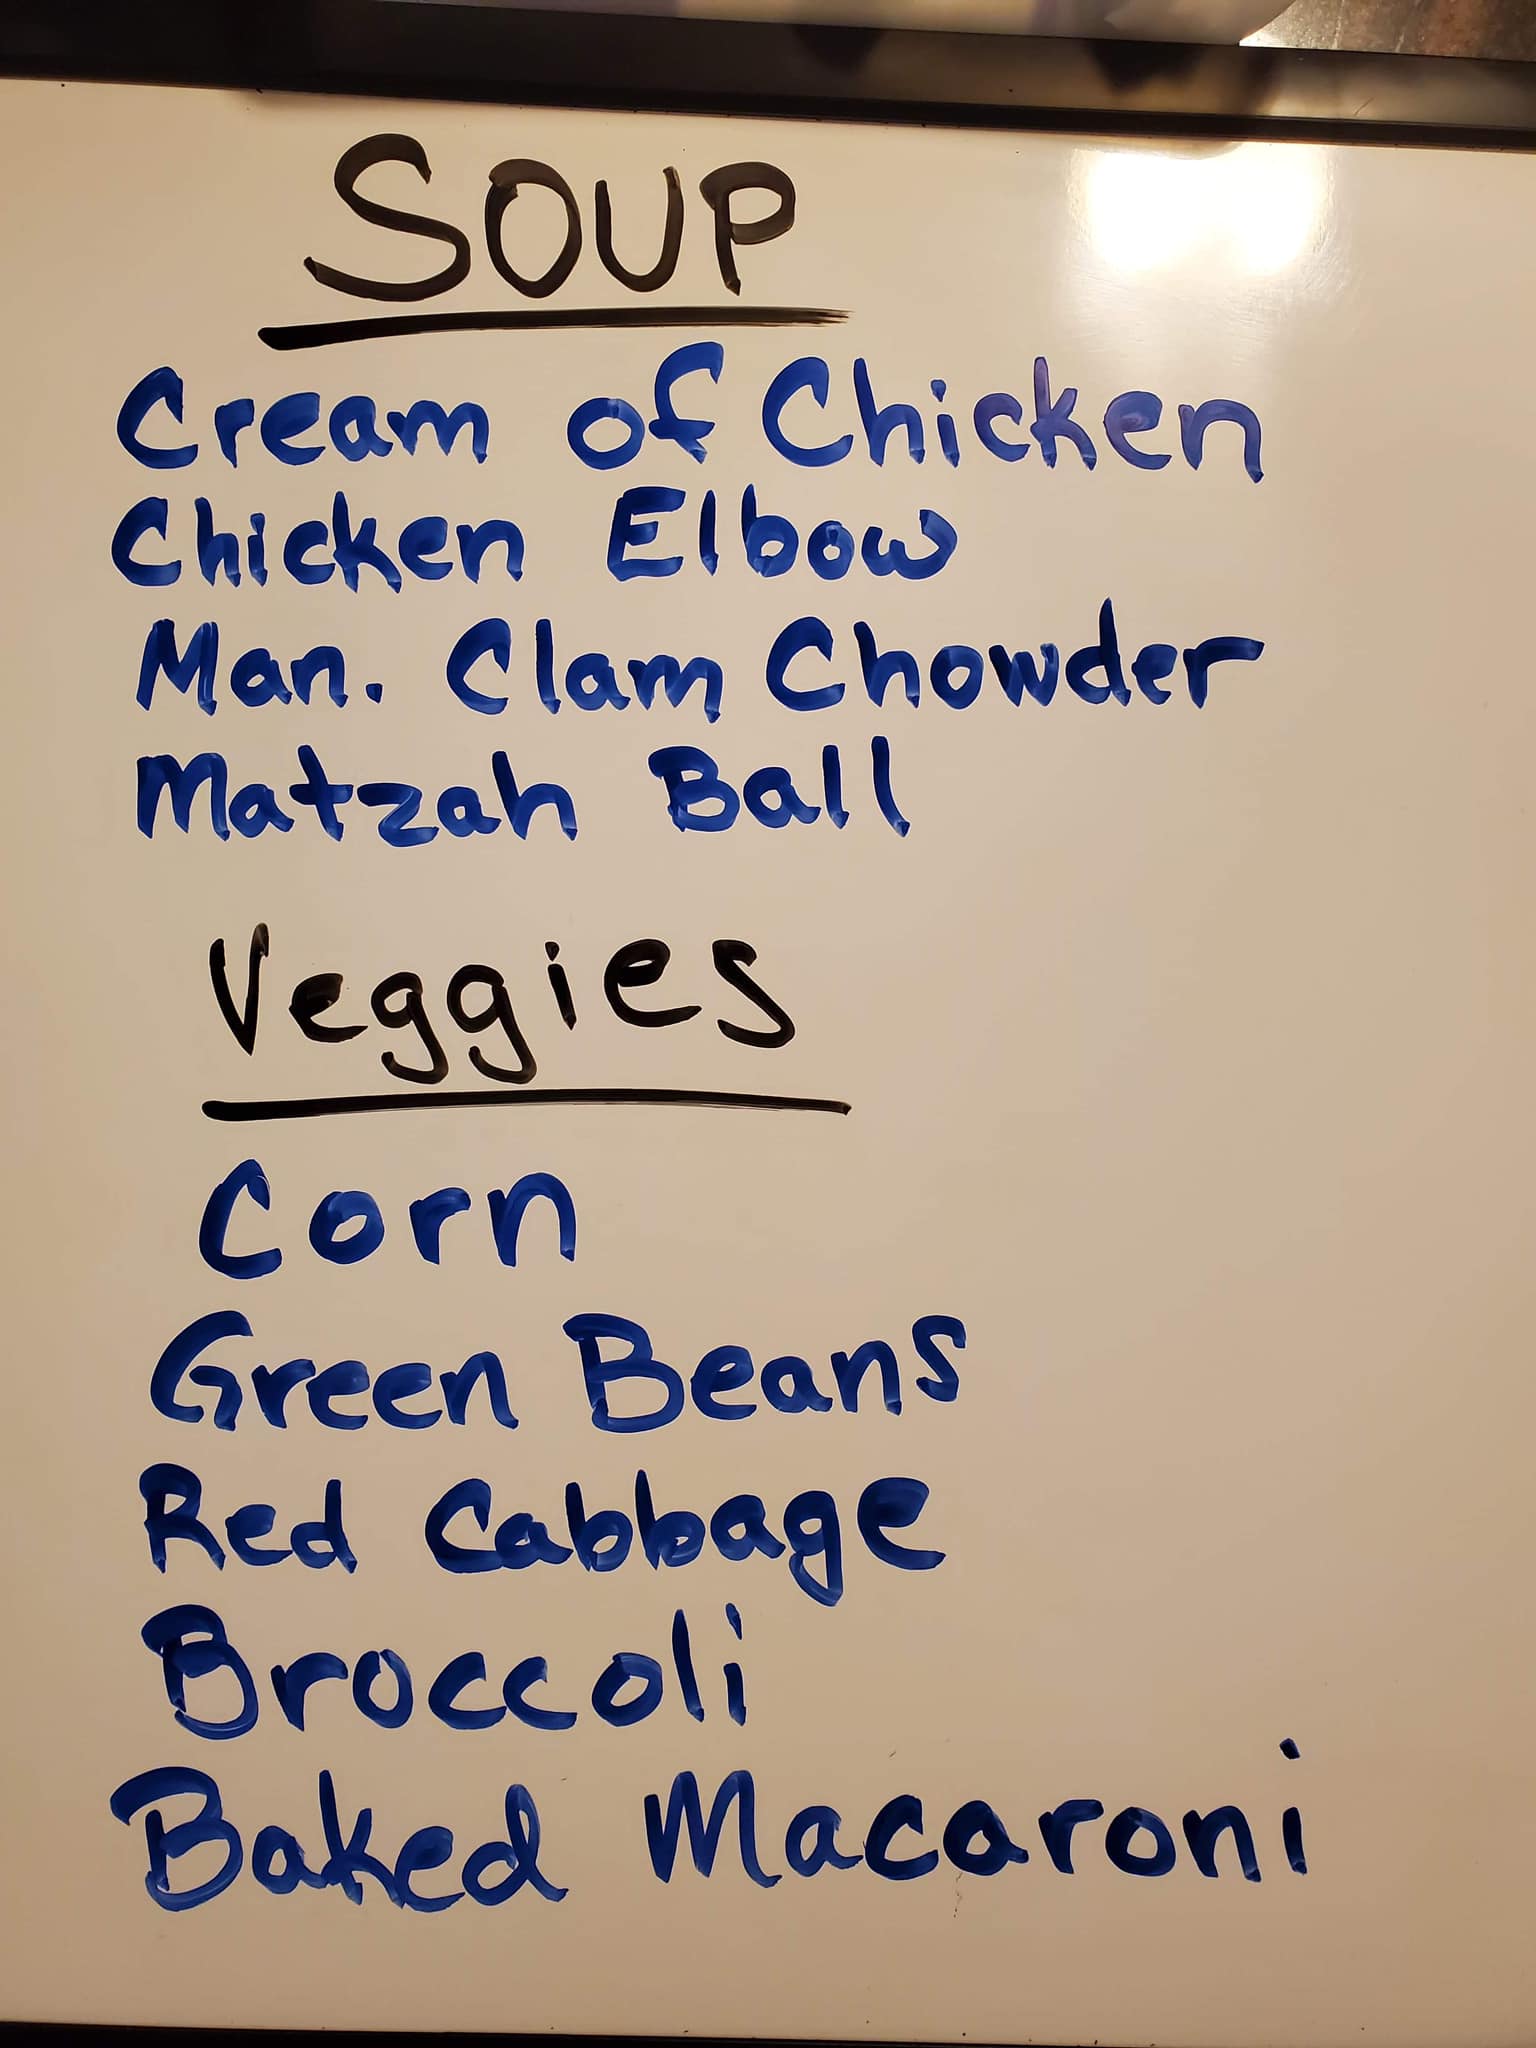 SOUP
Cream of Chicken
Chicken Elbow
Man. Clam Chowder
Matzah Ball
Veggies
Corn
Green Beans
Red Cabbage
Broccoli
Baked Macaroni